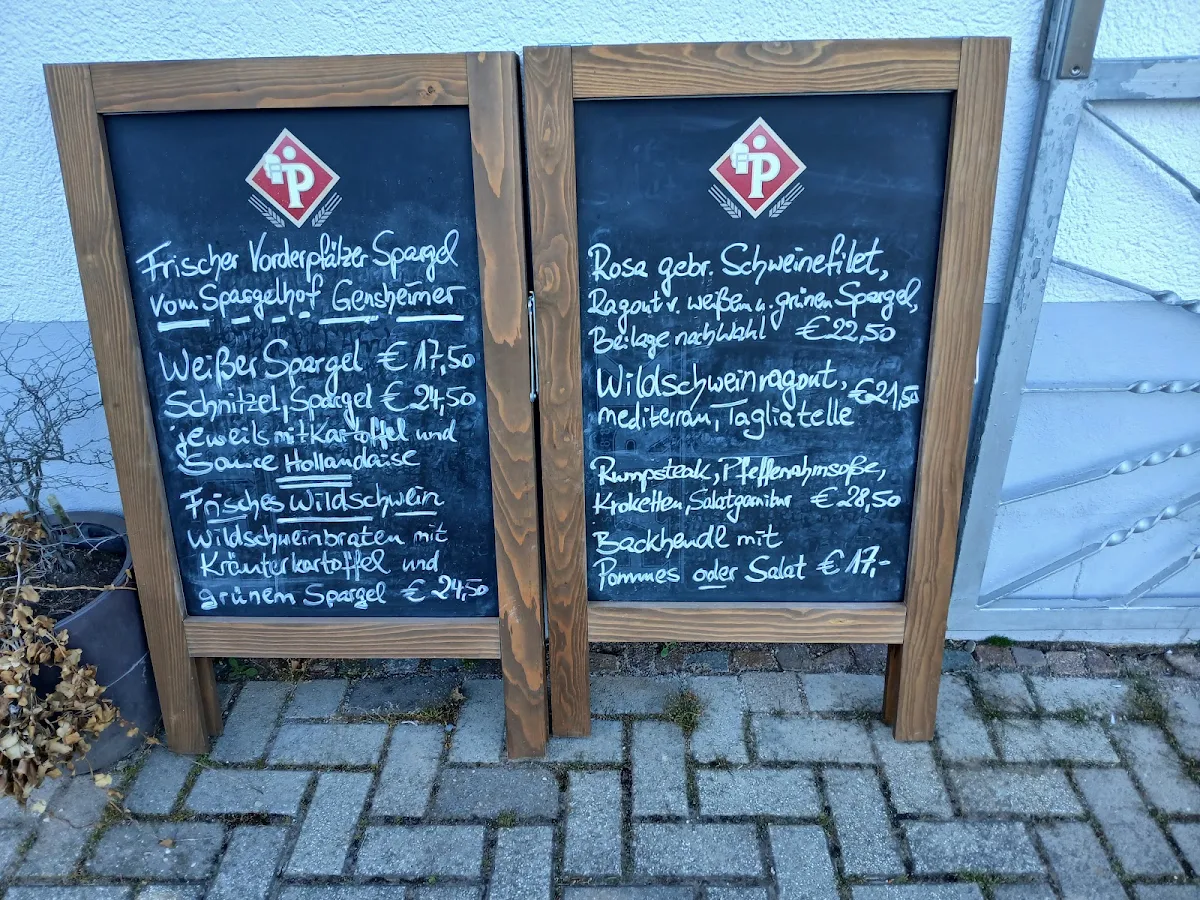 P
Frischer Vorderpfälzer Spargel
vom Spargelhof Gensheimer
Weißer Spargel €17,50
Schnitzel, Spargel €24,50
jeweils mit Kartoffel und
Sauce Hollandaise
Frisches Wildschwein
Wildschweinbraten mit
Kräuterkartoffel und
grünem Spargel €24,50
P
Rosa gebr. Schweinefilet,
Ragout v. weißem u. grünen Spargel,
Beilage nach Wahl €22,50
Wildschweinragout, €21,50
mediterran, Tagliatelle
Rumpsteak, Pfefferrahmsoße,
Kroketten, Salatgarnitur €28,50
Backhendl mit
Pommes oder Salat €17,-